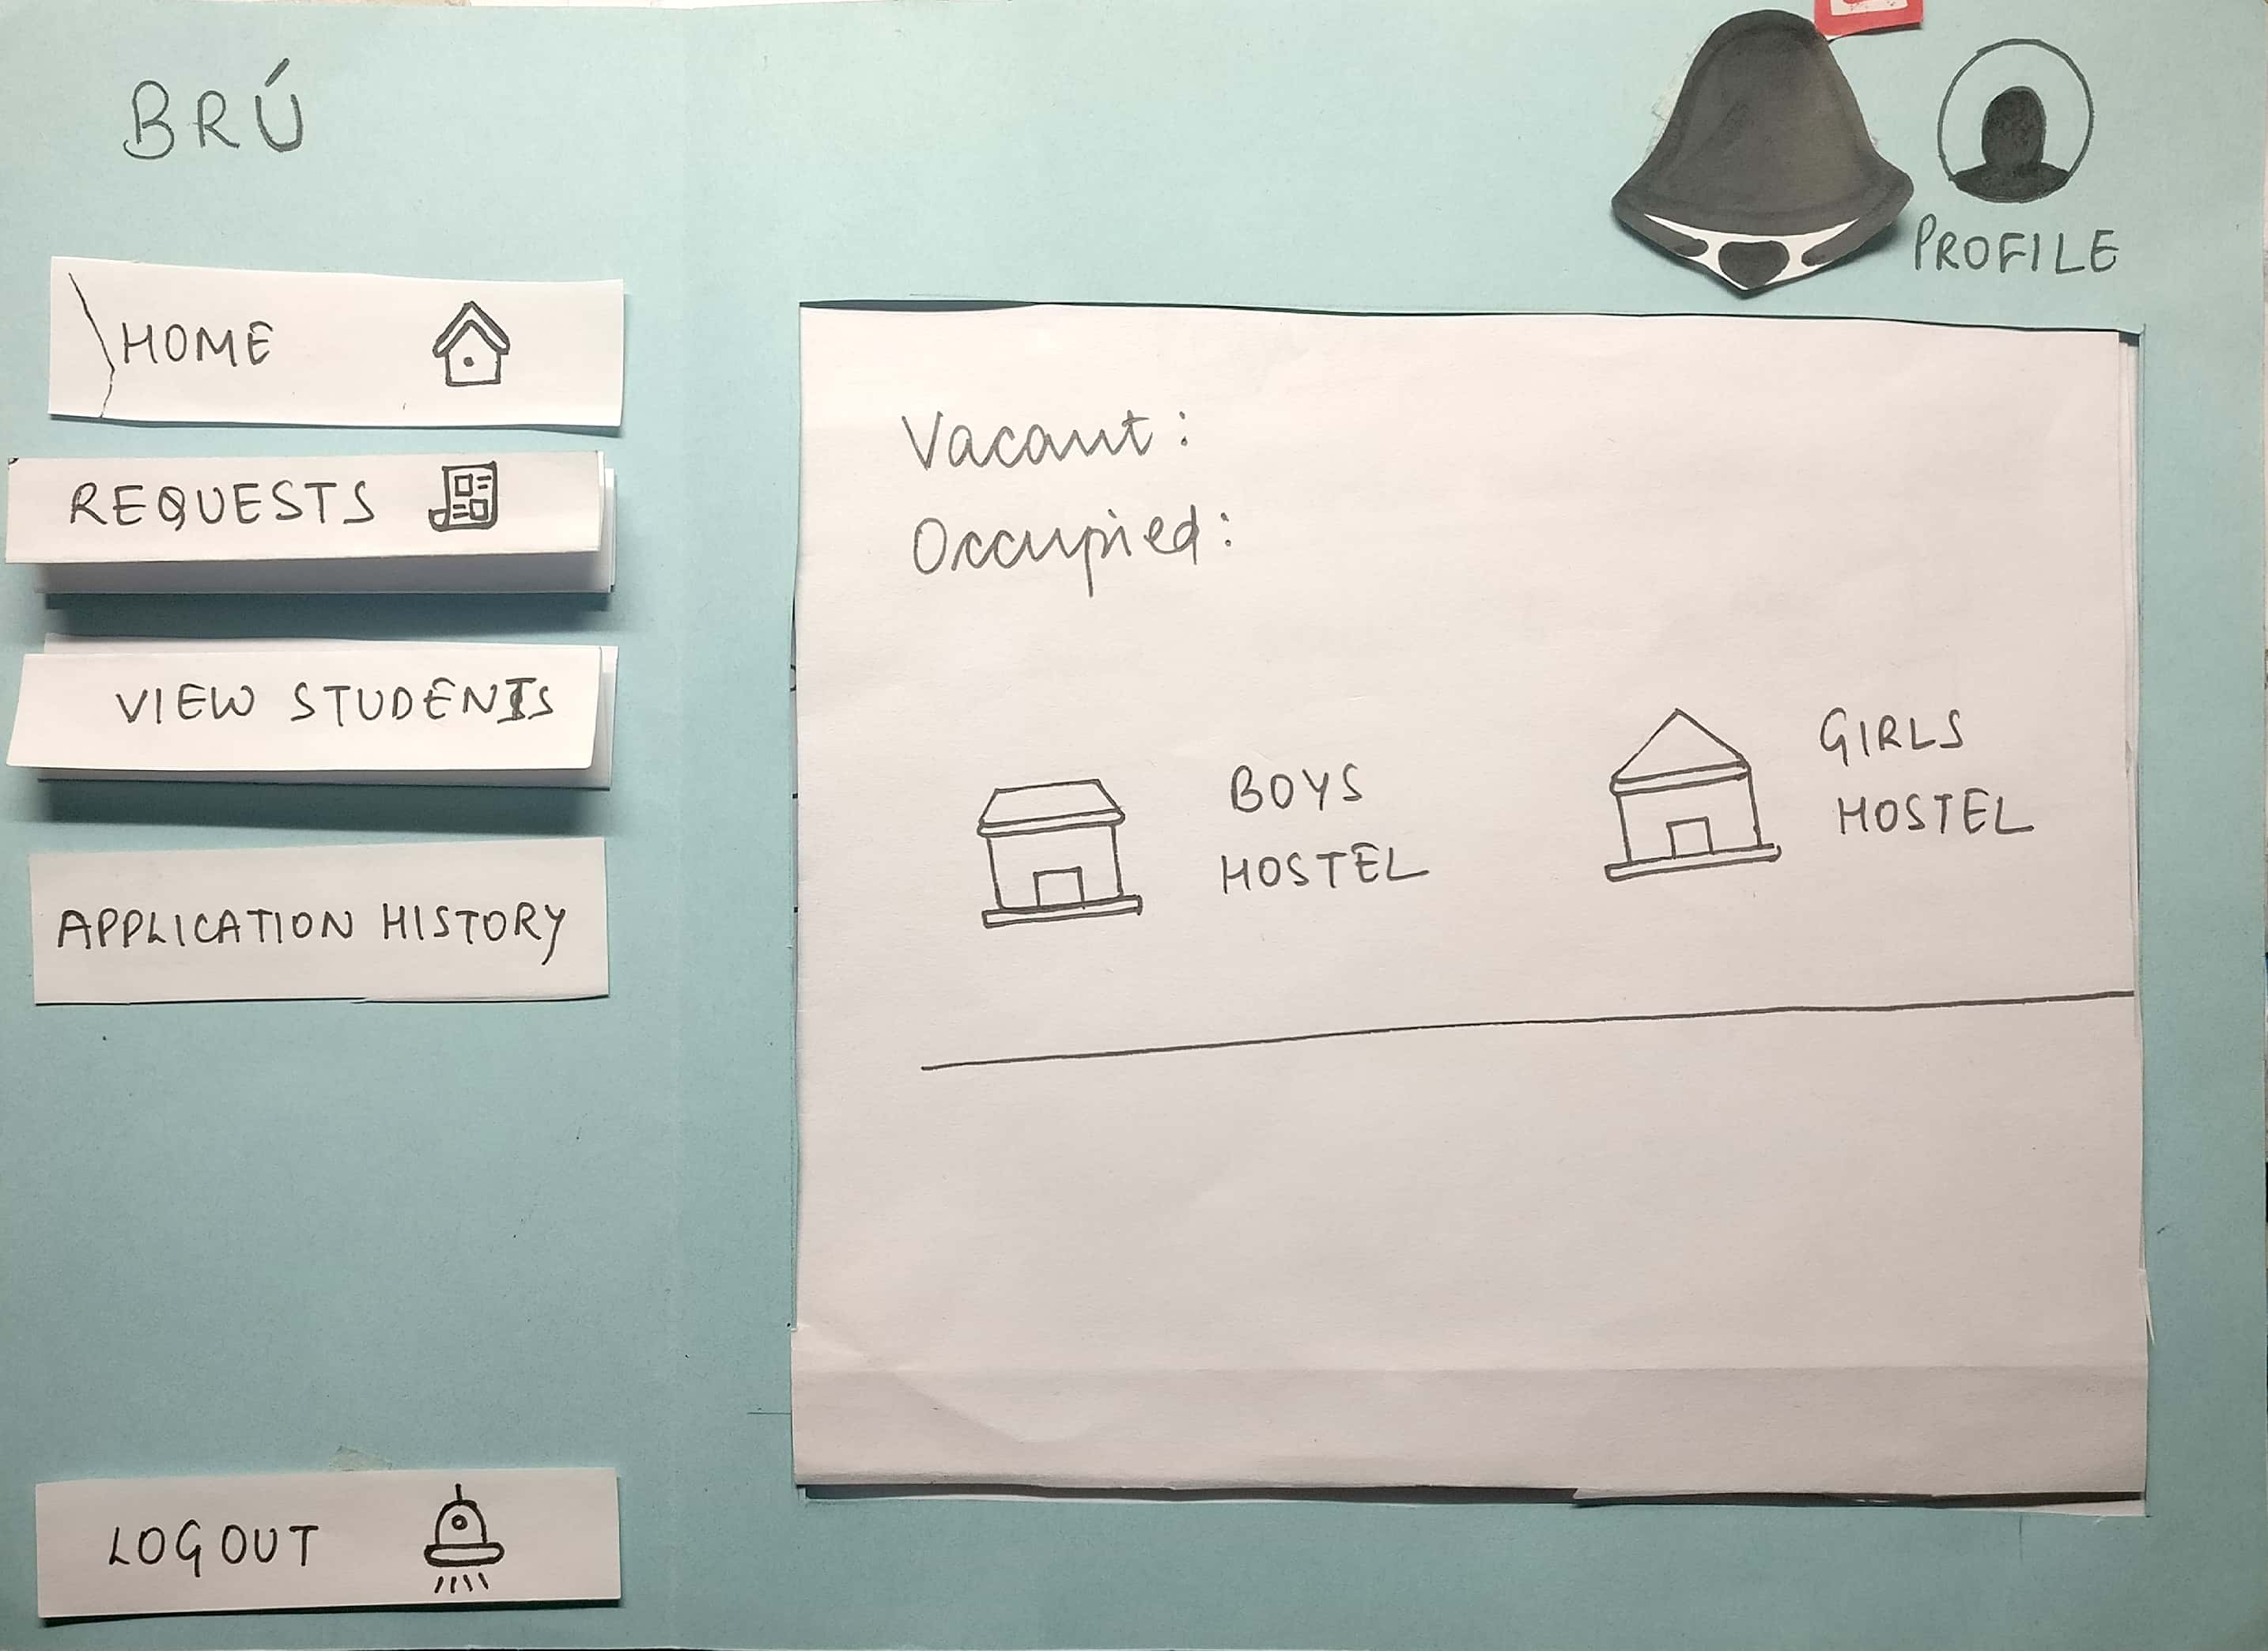 BRÚ
PROFILE
HOME
REQUESTS
VIEW STUDENTS
APPLICATION HISTORY
LOGOUT
Vacant:
Occupied:
BOYS
HOSTEL
GIRLS
HOSTEL